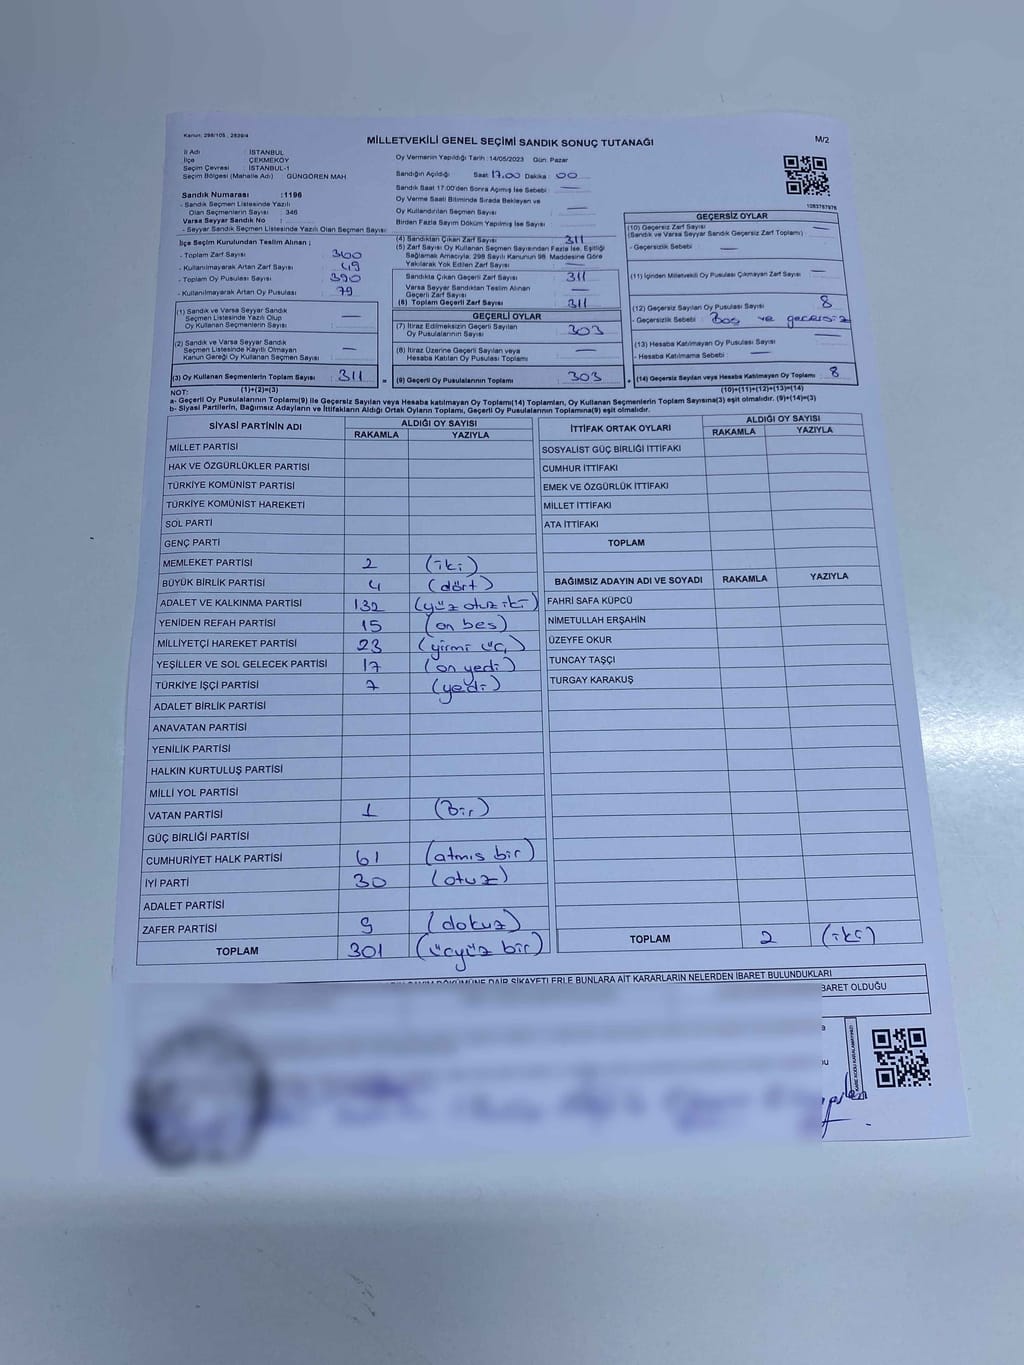 Kanun: 298/105, 2839/4
MİLLETVEKİLİ GENEL SEÇİMİ SANDIK SONUÇ TUTANAĞI
M/2
İl Adı : İSTANBUL
İlçe : ÇEKMEKÖY
Seçim Çevresi : İSTANBUL-1
Seçim Bölgesi (Mahalle Adı) : GÜNGÖREN MAH.
Oy Vermenin Yapıldığı Tarih : 14/05/2023 Gün: Pazar
Sandığın Açıldığı Saat 17.00 Dakika : 00
Sandık Saat 17:00'den Sonra Açılmış İse Sebebi : —
Oy Verme Saati Bitiminde Sırada Bekleyen ve
Oy Kullandırılan Seçmen Sayısı : —
Birden Fazla Sayım Döküm Yapılmış İse Sayısı :
Sandık Numarası : 1196
- Sandık Seçmen Listesinde Yazılı
Olan Seçmenlerin Sayısı : 346
Varsa Seyyar Sandık No :
- Seyyar Sandık Seçmen Listesinde Yazılı Olan Seçmen Sayısı :
İlçe Seçim Kurulundan Teslim Alınan ;
- Toplam Zarf Sayısı : 360
- Kullanılmayarak Artan Zarf Sayısı : 49
- Toplam Oy Pusulası Sayısı : 390
- Kullanılmayarak Artan Oy Pusulası : 79
(1) Sandık ve Varsa Seyyar Sandık
Seçmen Listesinde Yazılı Olup
Oy Kullanan Seçmenlerin Sayısı : —
(2) Sandık ve Varsa Seyyar Sandık
Seçmen Listesinde Kayıtlı Olmayan
Kanun Gereği Oy Kullanan Seçmen Sayısı : —
(3) Oy Kullanan Seçmenlerin Toplam Sayısı : 311
(1)+(2)=(3)
(4) Sandıktan Çıkan Zarf Sayısı : 311
(5) Zarf Sayısı Oy Kullanan Seçmen Sayısından Fazla İse, Eşitliği
Sağlamak Amacıyla, 298 Sayılı Kanunun 98. Maddesine Göre
Yakılarak Yok Edilen Zarf Sayısı : —
Sandıkta Çıkan Geçerli Zarf Sayısı : 311
Varsa Seyyar Sandıktan Teslim Alınan
Geçerli Zarf Sayısı : —
(6) Toplam Geçerli Zarf Sayısı : 311
GEÇERLİ OYLAR
(7) İtiraz Edilmeksizin Geçerli Sayılan
Oy Pusulalarının Sayısı : 303
(8) İtiraz Üzerine Geçerli Sayılan veya
Hesaba Katılan Oy Pusulası Toplamı : —
= (9) Geçerli Oy Pusulalarının Toplamı : 303
1083787976
GEÇERSİZ OYLAR
(10) Geçersiz Zarf Sayısı : —
(Sandık ve Varsa Seyyar Sandık Geçersiz Zarf Toplamı)
- Geçersizlik Sebebi : —
(11) İçinden Milletvekili Oy Pusulası Çıkmayan Zarf Sayısı : —
(12) Geçersiz Sayılan Oy Pusulası Sayısı : 8
- Geçersizlik Sebebi : Boş ve geçersiz
(13) Hesaba Katılmayan Oy Pusulası Sayısı : —
- Hesaba Katılmama Sebebi : —
+ (14) Geçersiz Sayılan veya Hesaba Katılmayan Oy Toplamı : 8
(10)+(11)+(12)+(13)=(14)
NOT:
a- Geçerli Oy Pusulalarının Toplamı(9) ile Geçersiz Sayılan veya Hesaba katılmayan Oy Toplamı(14) Toplamları, Oy Kullanan Seçmenlerin Toplam Sayısına(3) eşit olmalıdır. (9)+(14)=(3)
b- Siyasi Partilerin, Bağımsız Adayların ve İttifakların Aldığı Ortak Oyların Toplamı, Geçerli Oy Pusulalarının Toplamına(9) eşit olmalıdır.
SİYASİ PARTİNİN ADI
ALDIĞI OY SAYISI
RAKAMLA YAZIYLA
MİLLET PARTİSİ
HAK VE ÖZGÜRLÜKLER PARTİSİ
TÜRKİYE KOMÜNİST PARTİSİ
TÜRKİYE KOMÜNİST HAREKETİ
SOL PARTİ
GENÇ PARTİ
MEMLEKET PARTİSİ 2 (iki)
BÜYÜK BİRLİK PARTİSİ 4 (dört)
ADALET VE KALKINMA PARTİSİ 132 (yüz otuz iki)
YENİDEN REFAH PARTİSİ 15 (on beş)
MİLLİYETÇİ HAREKET PARTİSİ 23 (yirmi üç)
YEŞİLLER VE SOL GELECEK PARTİSİ 17 (on yedi)
TÜRKİYE İŞÇİ PARTİSİ 7 (yedi)
ADALET BİRLİK PARTİSİ
ANAVATAN PARTİSİ
YENİLİK PARTİSİ
HALKIN KURTULUŞ PARTİSİ
MİLLİ YOL PARTİSİ
VATAN PARTİSİ 1 (Bir)
GÜÇ BİRLİĞİ PARTİSİ
CUMHURİYET HALK PARTİSİ 61 (atmış bir)
İYİ PARTİ 30 (otuz)
ADALET PARTİSİ
ZAFER PARTİSİ 9 (dokuz)
TOPLAM 301 (üçyüz bir)
İTTİFAK ORTAK OYLARI
ALDIĞI OY SAYISI
RAKAMLA YAZIYLA
SOSYALİST GÜÇ BİRLİĞİ İTTİFAKI
CUMHUR İTTİFAKI
EMEK VE ÖZGÜRLÜK İTTİFAKI
MİLLET İTTİFAKI
ATA İTTİFAKI
TOPLAM
BAĞIMSIZ ADAYIN ADI VE SOYADI RAKAMLA YAZIYLA
FAHRİ SAFA KÜPCÜ
NİMETULLAH ERŞAHİN
ÜZEYFE OKUR
TUNCAY TAŞÇI
TURGAY KARAKUŞ
TOPLAM 2 (iki)
DÖKÜMÜNE DAİR ŞİKAYETLERLE BUNLARA AİT KARARLARIN NELERDEN İBARET BULUNDUKLARI
BARET OLDUĞU